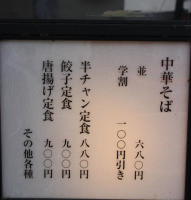 中華そば
並 六八〇円
学割 一〇〇円引き
半チャン定食 八八〇円
餃子定食 九〇〇円
唐揚げ定食 九〇〇円
その他各種